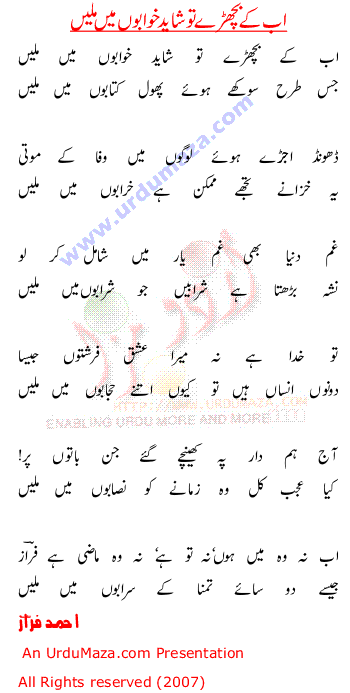 اب کے بچھڑے تو شاید خوابوں میں ملیں
اب کے بچھڑے تو شاید خوابوں میں ملیں
جس طرح سوکھے ہوئے پھول کتابوں میں ملیں
ڈھونڈ اجڑے ہوئے لوگوں میں وفا کے موتی
یہ خزانے تجھے ممکن ہے خرابوں میں ملیں
غم دنیا بھی غم یار میں شامل کر لو
نشہ بڑھتا ہے شرابیں جو شرابوں میں ملیں
تو خدا ہے نہ میرا عشق فرشتوں جیسا
دونوں انساں ہیں تو کیوں اتنے حجابوں میں ملیں
آج ہم دار پہ کھینچے گئے جن باتوں پر!
کیا عجب کل وہ زمانے کو نصابوں میں ملیں
اب نہ وہ میں ہوں نہ تو ہے نہ وہ ماضی ہے فراز
جیسے دو سائے تمنا کے سرابوں میں ملیں
احمد فراز
An UrduMaza.com Presentation
All Rights reserved (2007)
www.urdumaza.com
HTTP://WWW.URDUMAZA.COM
ENABLING URDU MORE AND MORE